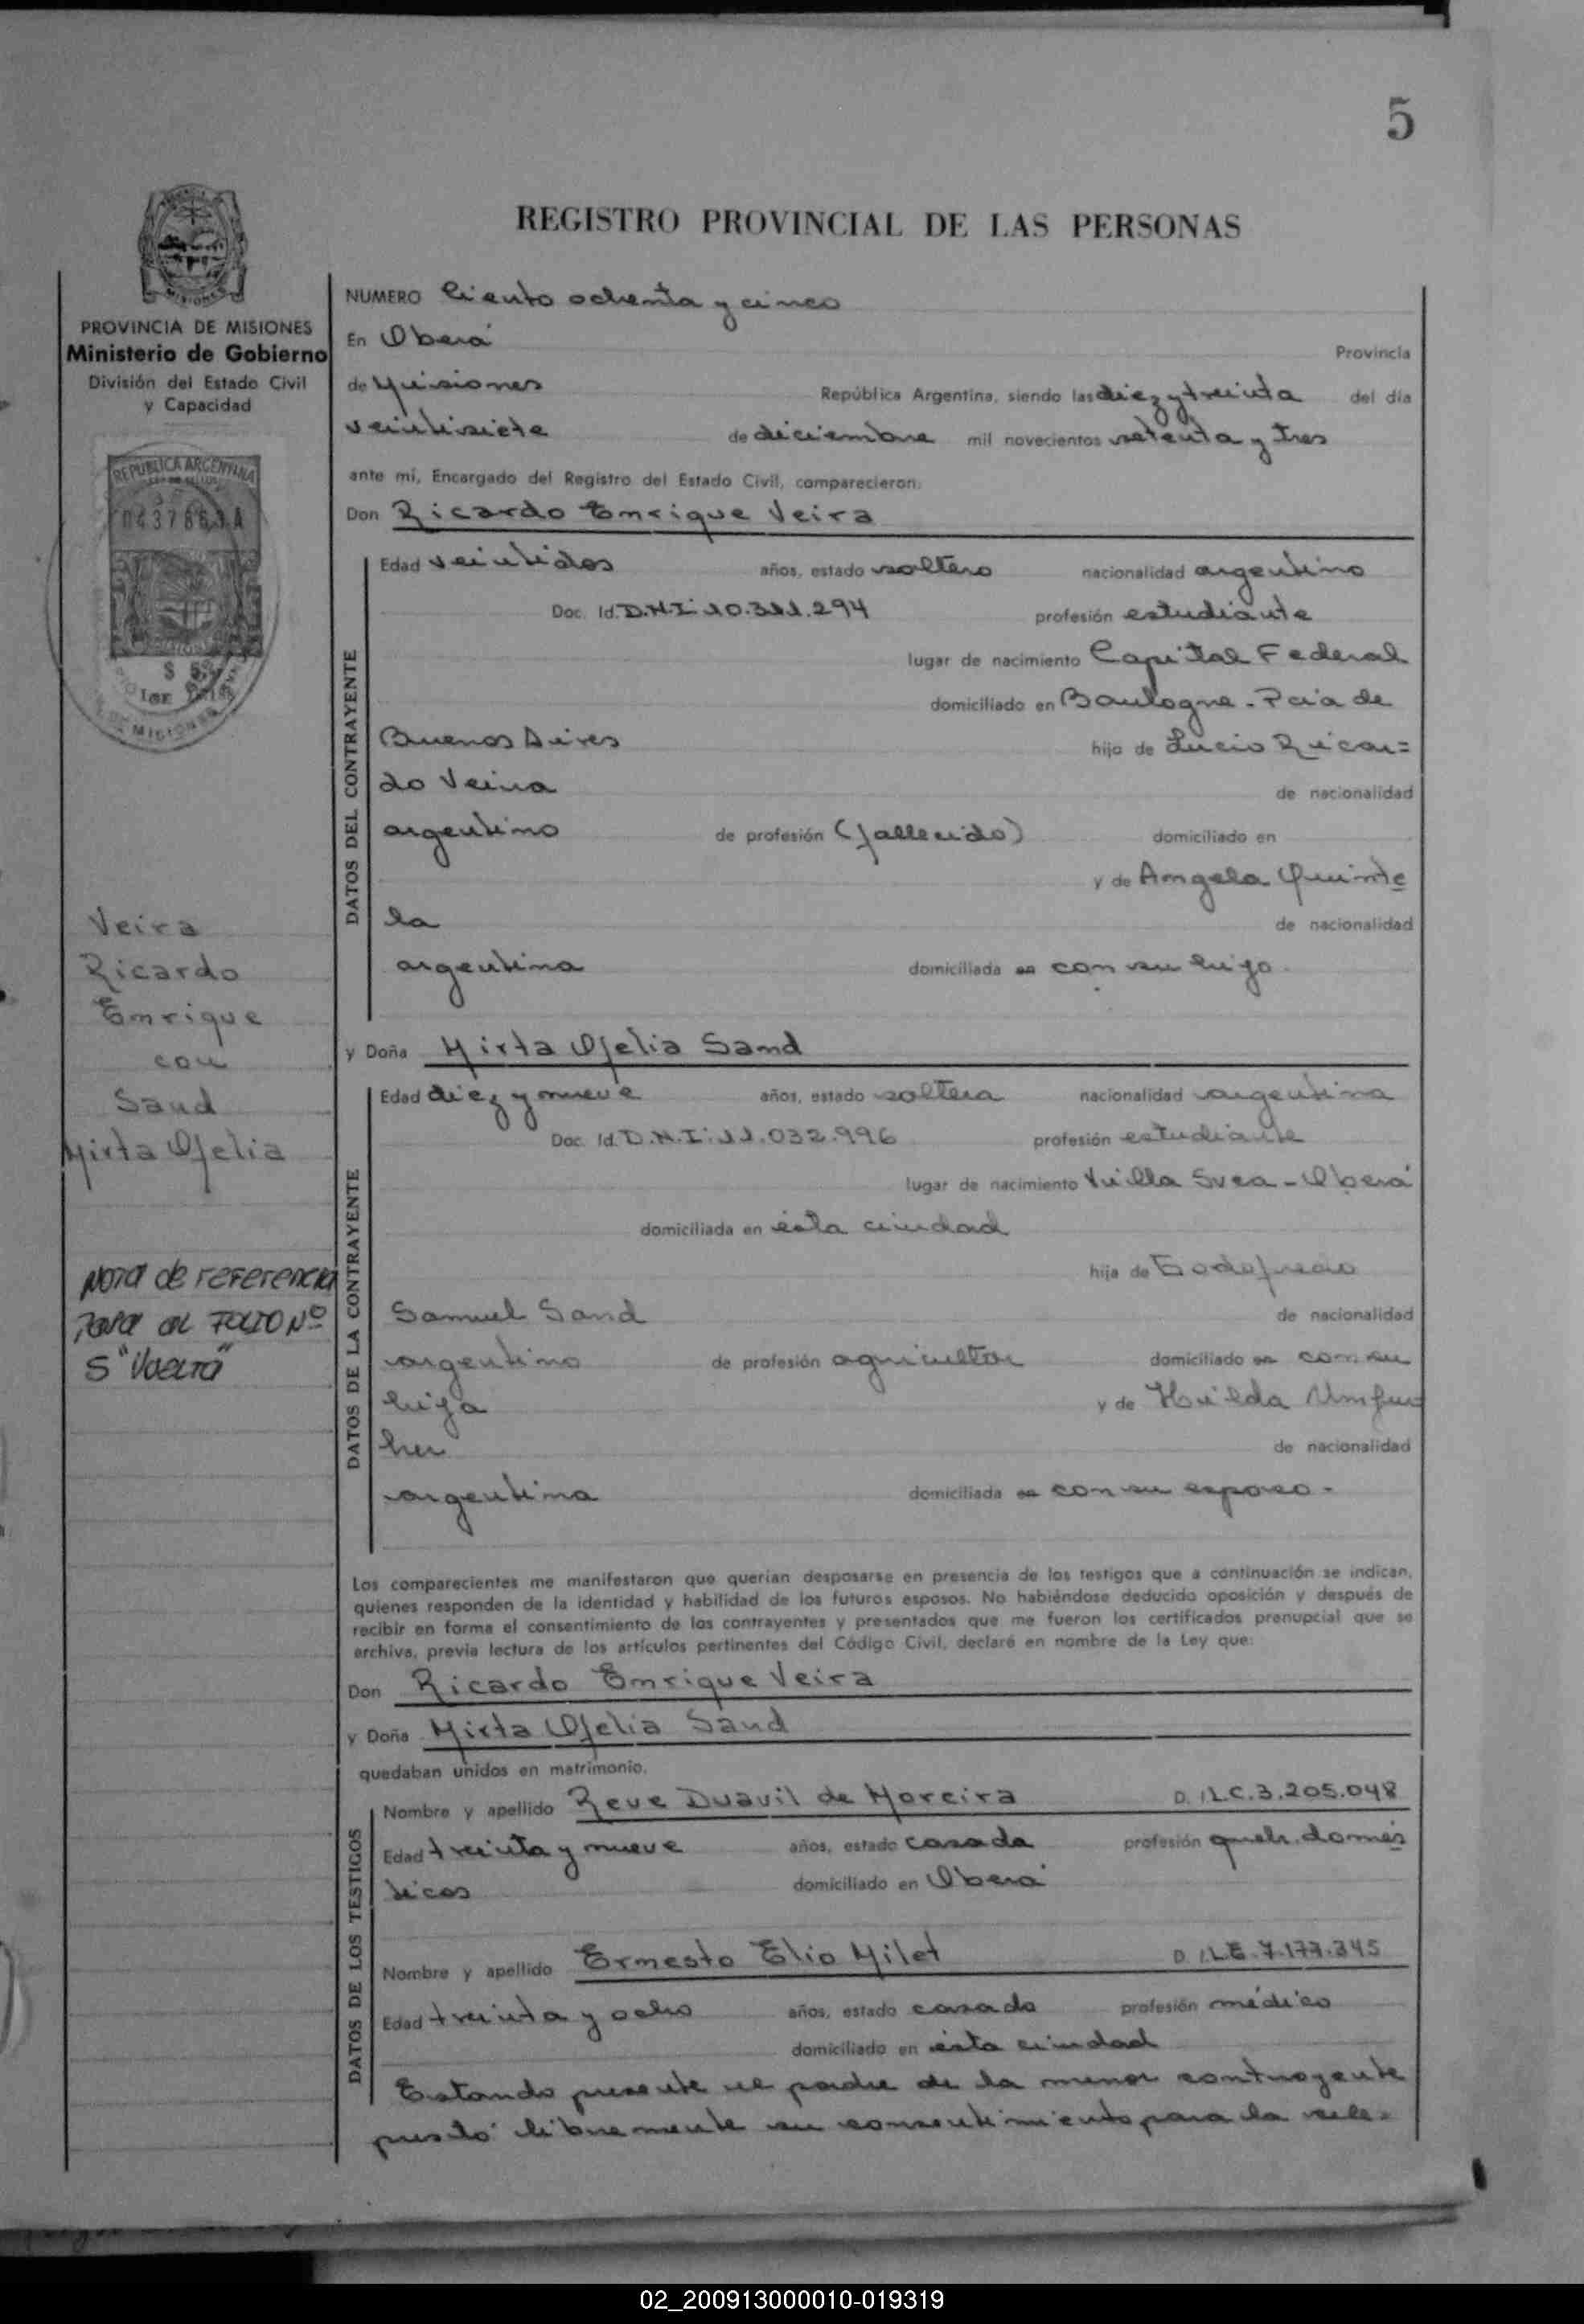 5
REGISTRO PROVINCIAL DE LAS PERSONAS
PROVINCIA DE MISIONES
Ministerio de Gobierno
División del Estado Civil
y Capacidad
REPUBLICA ARGENTINA
$ 5
MISIONES
Veira
Ricardo
Enrique
con
Sand
Mirta Ofelia
Nota de referencia
pasa al FOLIO Nº
5 "Vuelta"
NUMERO Ciento ochenta y cinco
En Oberá Provincia
de Misiones República Argentina, siendo las diez y treinta del día
veintisiete de diciembre mil novecientos setenta y tres
ante mí, Encargado del Registro del Estado Civil, comparecieron:
Don Ricardo Enrique Veira
DATOS DEL CONTRAYENTE
Edad veintidos años, estado soltero nacionalidad argentino
Doc. Id. D.N.I: 10.311.294 profesión estudiante
lugar de nacimiento Capital Federal
domiciliado en Boulogne - Pcia de
Buenos Aires hijo de Lucio Ricar=
do Veira de nacionalidad
argentino de profesión (fallecido) domiciliado en
y de Angela Quinte
la de nacionalidad
argentina domiciliada en con su hijo.
y Doña Mirta Ofelia Sand
DATOS DE LA CONTRAYENTE
Edad diez y nueve años, estado soltera nacionalidad argentina
Doc. Id. D.N.I: 11.032.996 profesión estudiante
lugar de nacimiento Villa Svea - Oberá
domiciliada en ésta ciudad
hija de Godofredo
Samuel Sand de nacionalidad
argentino de profesión agricultor domiciliado en con su
hija y de Hilda
her de nacionalidad
argentina domiciliada en con su esposo -
Los comparecientes me manifestaron que querían desposarse en presencia de los testigos que a continuación se indican,
quienes responden de la identidad y habilidad de los futuros esposos. No habiéndose deducido oposición y después de
recibir en forma el consentimiento de los contrayentes y presentados que me fueron los certificados prenupcial que se
archiva, previa lectura de los artículos pertinentes del Código Civil, declaré en nombre de la Ley que:
Don Ricardo Enrique Veira
y Doña Mirta Ofelia Sand
quedaban unidos en matrimonio.
DATOS DE LOS TESTIGOS
Nombre y apellido Reve Duavil de Moreira D. I L.C. 3.205.048
Edad treinta y nueve años, estado casada profesión queh. domés
ticos domiciliado en Oberá
Nombre y apellido Ernesto Elio Milet D. I. L.E. 7.177.345
Edad treinta y ocho años, estado casado profesión médico
domiciliado en ésta ciudad
Estando presente el padre de la menor contrayente
prestó libremente su consentimiento para la cele=
02_200913000010-019319